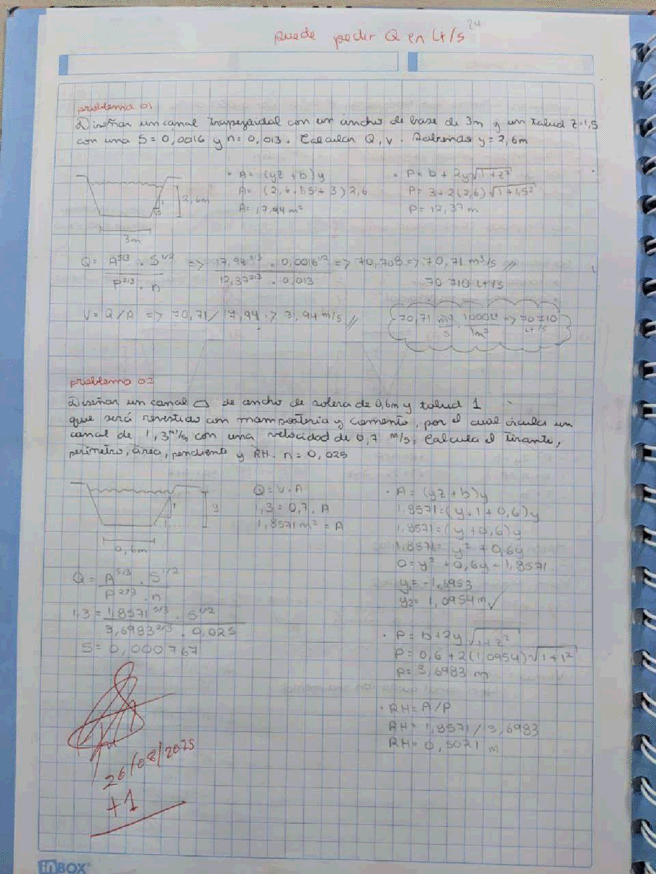 24
puede pedir Q en Lt/s
problema 01
Diseñar un canal trapezoidal con un ancho de base de 3m y un talud Z=1,5
con una S=0,0016 y n=0,013. Calcular Q, V. Sabiendo y=2,6m
2,6m
3m
• A = (yz + b)y
A = (2,6 . 1,5 + 3) 2,6
A = 17,94 m²
• P = b + 2y√1+z²
P = 3 + 2(2,6)√1+1,5²
P = 12,37 m
Q = A^5/3 . S^1/2 / P^2/3 . n => 17,94^5/3 . 0,0016^1/2 / 12,37^2/3 . 0,013 => 70,708 => 70,71 m³/s //
70 710 Lt/s
V = Q/A => 70,71 / 17,94 => 3,94 m/s //
70,71 m³/s . 1000Lt/1m³ => 70710 Lt/s
problema 02
Diseñar un canal de ancho de solera de 0,6m y talud 1
que será revestido con mampostería y cemento, por el cual circula un
canal de 1,3 m³/s con una velocidad de 0,7 m/s. Calcula el tirante,
perímetro, área, pendiente y RH. n=0,025
y
1
1
0,6m
Q = V . A
1,3 = 0,7 . A
1,8571 m² = A
• A = (yz + b)y
1,8571 = (y . 1 + 0,6)y
1,8571 = (y + 0,6)y
1,8571 = y² + 0,6y
0 = y² + 0,6y - 1,8571
y₁ = -1,6953
y₂ = 1,0954m ✓
Q = A^5/3 . S^1/2 / P^2/3 . n
1,3 = 1,8571^5/3 . S^1/2 / 3,6983^2/3 . 0,025
S = 0,000767
• P = b + 2y√1+z²
P = 0,6 + 2(1,0954)√1+1²
P = 3,6983 m
• RH = A/P
RH = 1,8571 / 3,6983
RH = 0,5021 m
26/08/2025
+1
inBOX